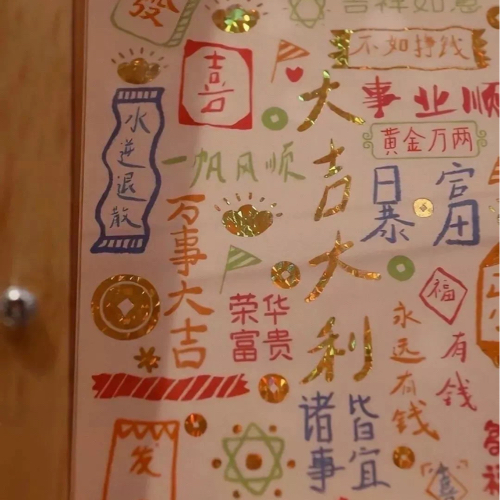 發
吉祥如意
不如挣钱
喜
事业顺
黄金万两
水逆退散
一帆风顺
大吉大利
暴富
万事大吉
荣华
富贵
福
永远有钱
有钱
诸事
皆宜
发